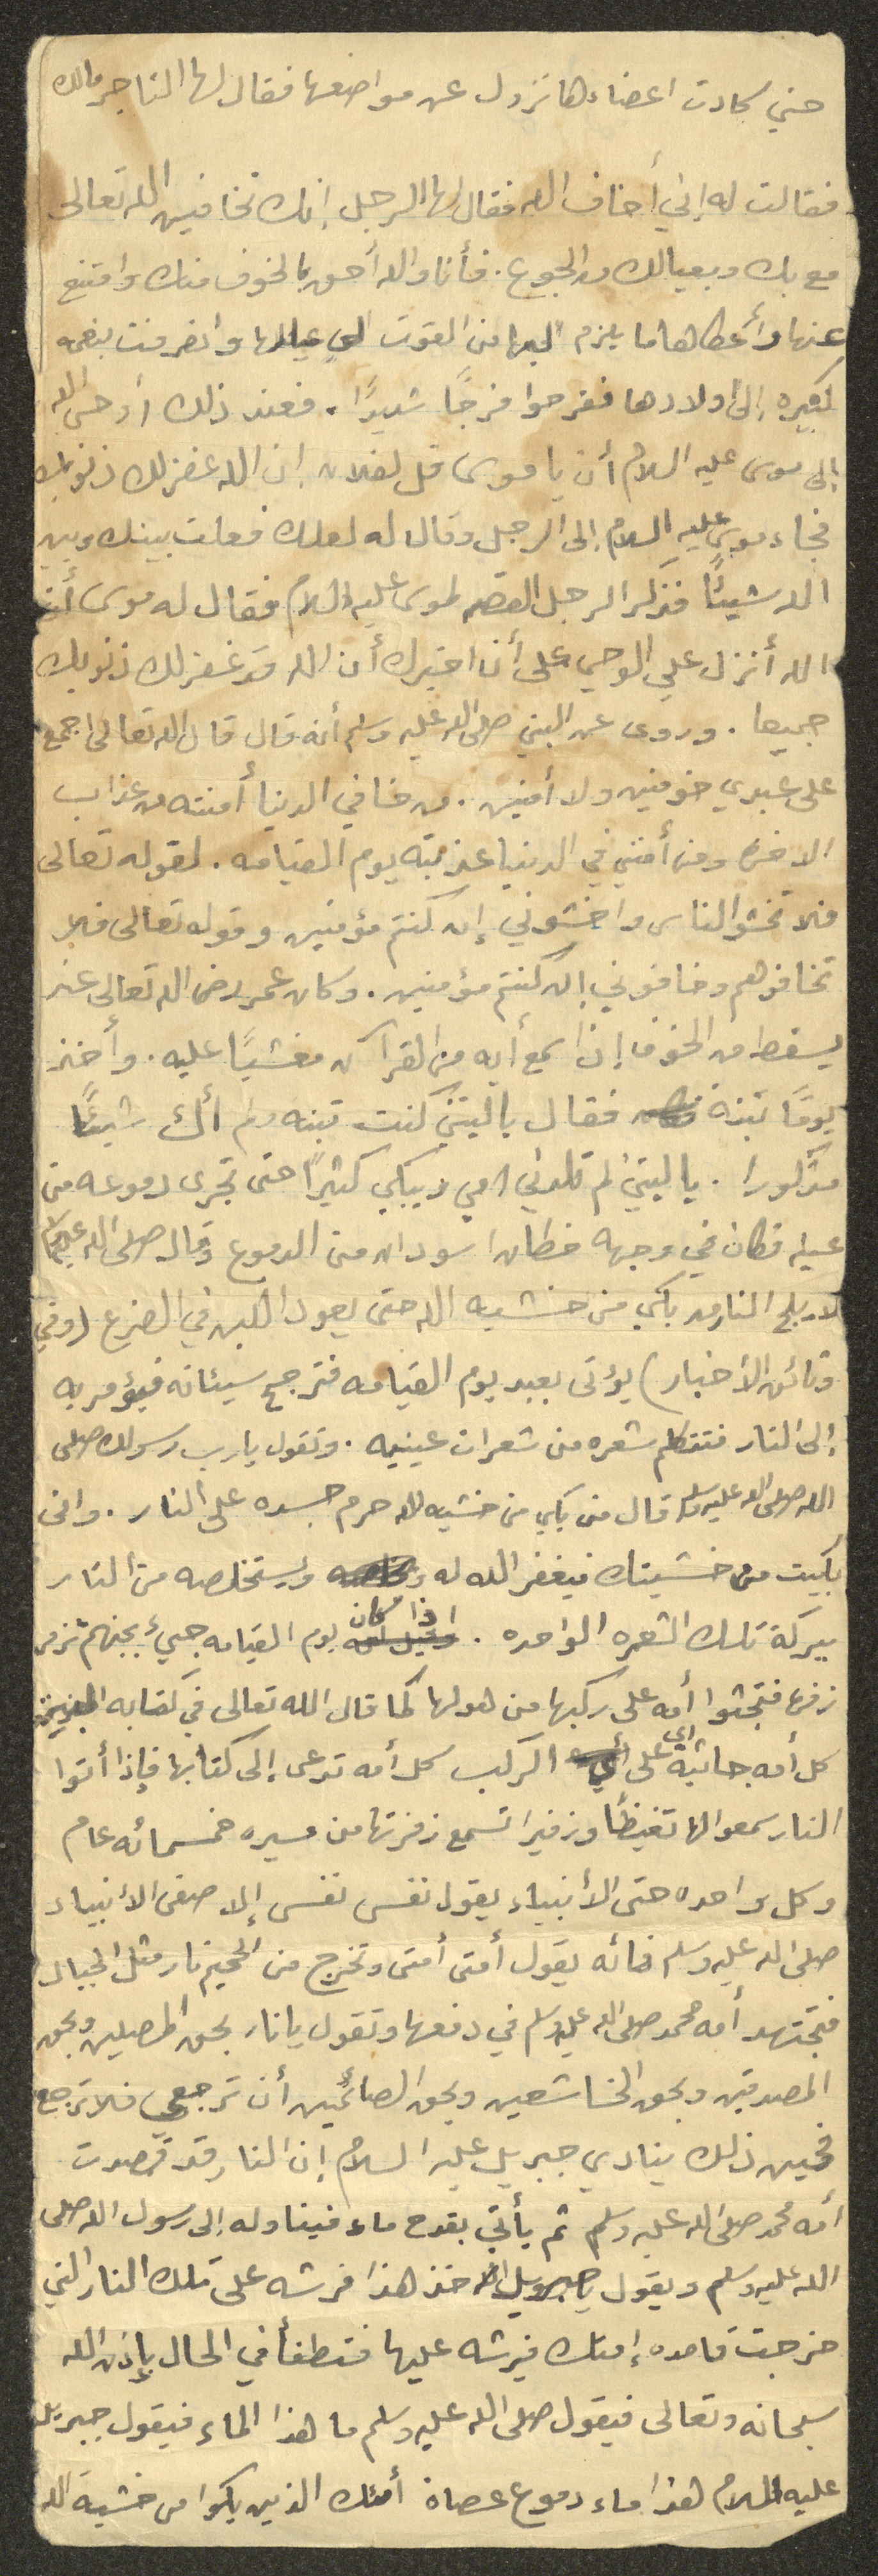 حتي كادت اعضاءها تزول عن مواضعها فقال لها التاجر مالك
فقالت له إني أخاف الله فقال لها الرجل إنك تخافين الله تعالى
مع بك وبعيالك من الجوع. فأنا والله أحق بالخوف منك وامتنع
عنها وأعطاها ما يلزم اليها من القوت الي عيالها وانصرفت بنعمه
كبيره إلى اولادها ففرحوا فرحًا شديدًا. فعند ذلك أوحى الله
إلى موسى عليه السلام أن يا موسى قل لفلان إن الله غفر لك ذنوبك
فجاء موسى عليه السلام إلى الرجل وقال له لعلك فعلت بينك وبين
الله شيئًا فذكر الرجل القصه لموسى عليه السلام فقال له موسى أن
الله أنزل علي الوحي على أن اخبرك أن الله قد غفر لك ذنوبك
جميعا. وروى عن النبي صلى الله عليه وسلم أنه قال قال الله تعالى اجمع
على عبدي خوفين ولا أمنين. من خافني الدنيا أمنته من عذاب
الاخره ومن أمنني في الدنيا عذبته يوم القيامه. لقوله تعالى
فلا تخشوا الناس واخشوني إن كنتم مؤمنين وقوله تعالى فلا
تخافوهم وخافوني إن كنتم مؤمنين. وكان عمر رضى الله تعالى عنه
يسقط من الخوف إذا سمع أيه من القرآن مغشيًا عليه. وأخذ
يومًا تبنة فقال ياليتني كنت تبنه ولم أك شيئًا
مذكورا. ياليتني لم تلدني امي ويبكي كثيرًا حتى تجرى دموعه من
عينيه فكان في وجهه خطان اسودان من الدموع وقال صلى الله عليه وسلم
لا يلج النار من بكي من خشيه الله حتى يعود اللبن في الضرع (وفي
دقائق الأخبار) يؤتى بعبد يوم القيامه فترجح سيئاته فيؤمر به
إلى النار فتتكلم شعره من شعرات عينيه. وتقول يارب رسولك صلى
الله صلى الله عليه وسلم قال من بكي من خشيه الله حرم جسده على النار. وانى
بكيت من خشيتك فيغفر الله له ويستخلصه من النار
ببركة تلك الشعره الواحده. اذا كان يوم القيامه جيئ بجهنم تزفر
زفره فتجثوا أمه على ركبها من هولها كما قال الله تعالى في كتابه العزيز
كل أمه جاثية اى على الركب كل أمه تدعى إلى كتابها فإذا أتوا
النار سمعوا لها تغيظًا وزفيرا تسمع زفرتها من مسيره خمسمائه عام
وكل واحده حتى الأنبياء يقول نفسى نفسى إلا صفى الأنبياء
صلى الله عليه وسلم فائه يقول أمتى أمتى وتخرج من الجحيم نار مثل الجبال
فتجتهد أمه محمد صلى الله عليه وسلم في دفعها وتقول يانار بحق المصلين وبحق
المصدقين وبحق الخاشعين وبحق الصائمين أن ترجعي فلا ترجع
فحين ذلك ينادي جبريل عليه السلام إن النار قد قصدت
أمه محمد صلى الله عليه وسلم ثم يأتي بقدح ماء فيناوله إلى رسول الله صلى
الله عليه وسلم ويقول خذ هذا فرشه على تلك النار التي
خرجت قاصده إمتك فيرشه عليها فتطفأ في الحال بإذن الله
سبحانه وتعالى فيقول صلى الله عليه وسلم ما هذا الماء فيقول جبريل
عليه السلام هذا ماء دموع عصاة أمتك الذين بكوا من خشية الله